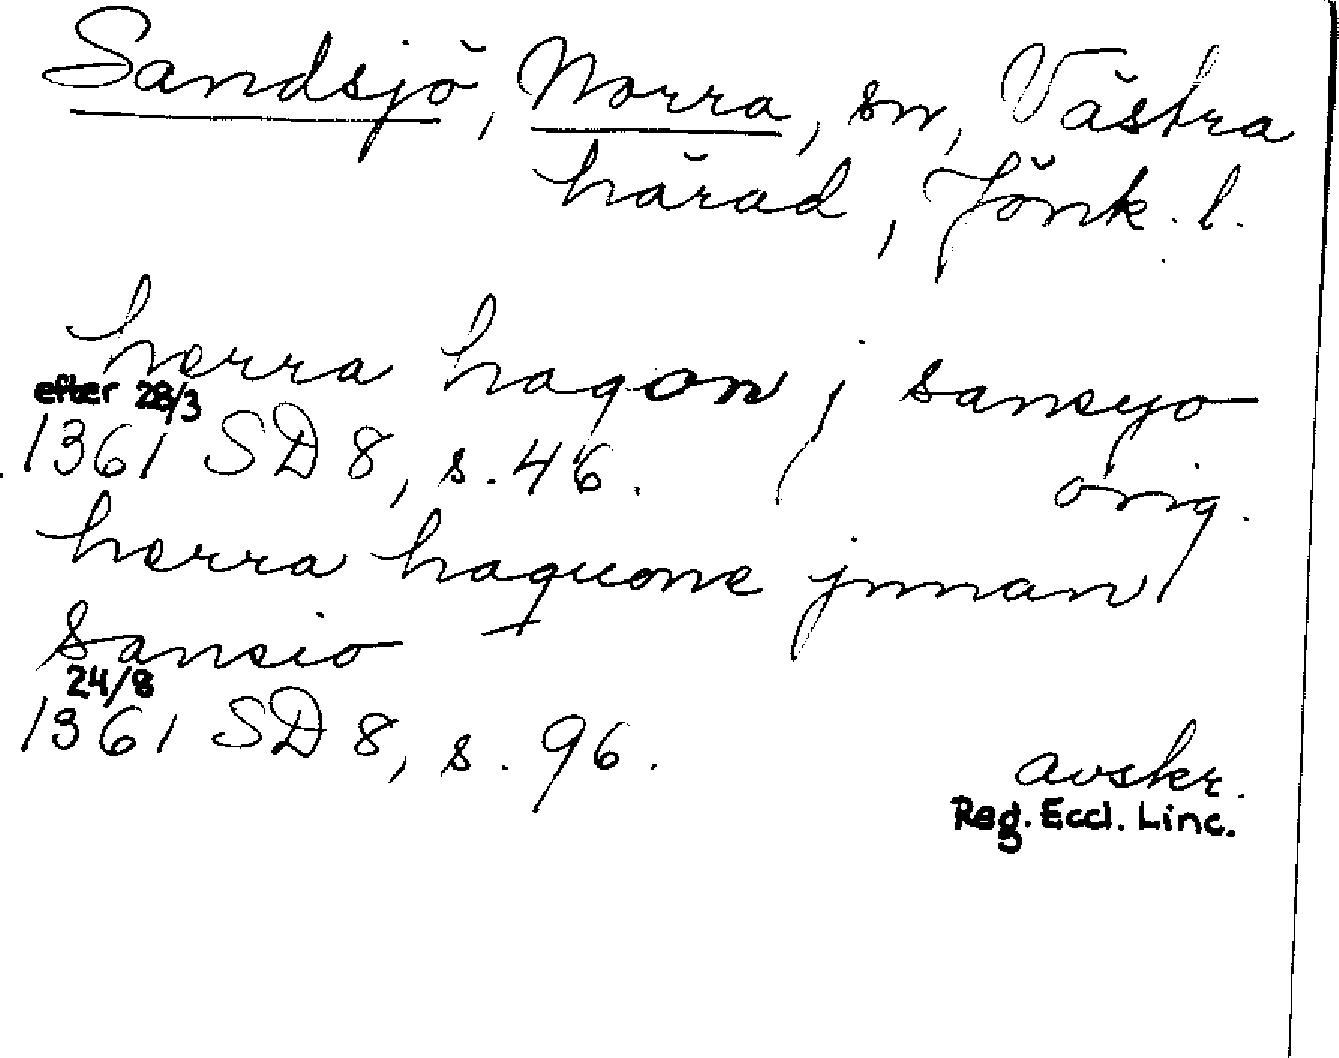 Sandsjö, Norra, sn, Västra
härad, Jönk. l.
herra haqon j sansyo
efter 28/3
1361 SD 8, s. 46. orig.
herra haquone jnnan
sansio
24/8
1361 SD 8, s. 96. avskr.
Reg. Eccl. Linc.